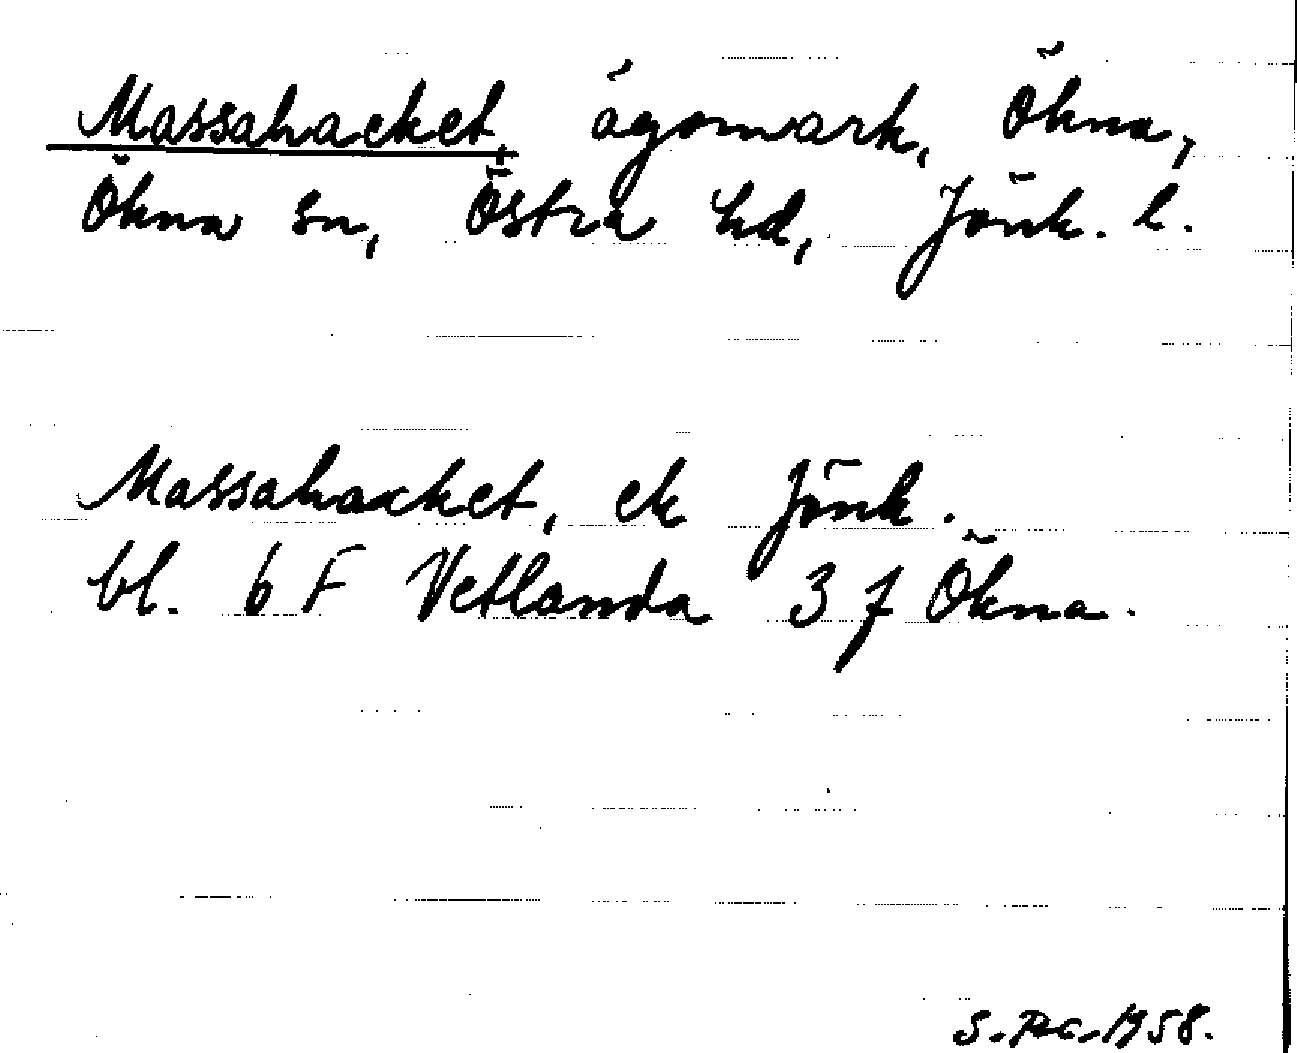 Massahacket, ägomark, Ökna,
Ökna sn, Östra hd, Jönk. l.
Massahacket, ek Jönk.
bl. 6 F Vetlanda 3 f Ökna.
1958.